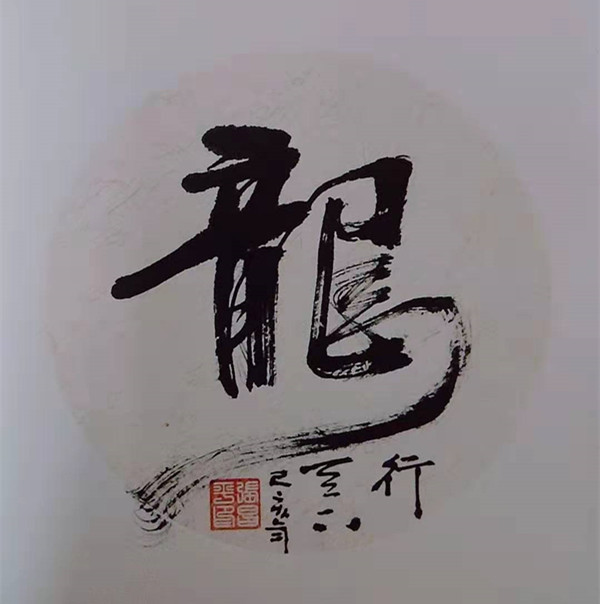 龍
行
天下
己亥